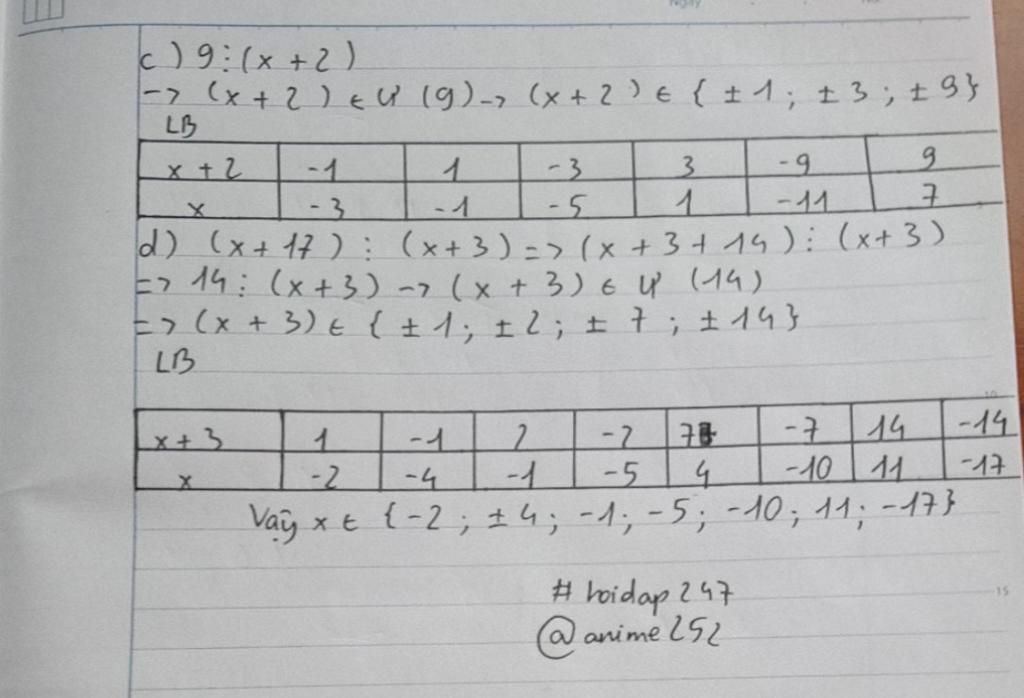 c) 9⋮(x+2)
-> (x+2) ∈ Ư (9) -> (x+2) ∈ {±1; ±3; ±9}
LB
x+2 -1 1 -3 3 -9 9
x -3 -1 -5 1 -11 7
d) (x+17) ⋮ (x+3) => (x+3+14) ⋮ (x+3)
=> 14 ⋮ (x+3) -> (x+3) ∈ Ư (14)
=> (x+3) ∈ {±1; ±2; ±7; ±14}
LB
x+3 1 -1 2 -2 7 -7 14 -14
x -2 -4 -1 -5 4 -10 11 -17
Vậy x ∈ {-2; ±4; -1; -5; -10; 11; -17}
# hoidap247
@anime252